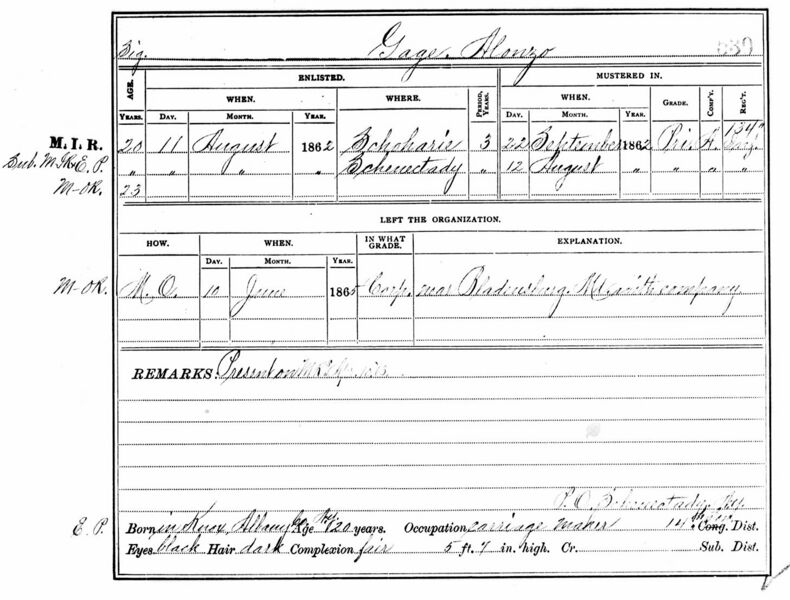 Sig. Gage, Alonzo
AGE. ENLISTED. MUSTERED IN.
WHEN. WHERE. PERIOD, YEARS. WHEN. GRADE. COMP'Y. REG'T.
YEARS. DAY. MONTH. YEAR. DAY. MONTH. YEAR.
M. I. R. 20 11 August 1862 Schoharie 3 22 September 1862 Pri. 134"
Sub. M. R. E. P. " " " " Schenectady " 12 August " " " "
M-OR. 23
LEFT THE ORGANIZATION.
HOW. WHEN. IN WHAT GRADE. EXPLANATION.
DAY. MONTH. YEAR.
M-OR. M. O. 10 June 1865 Corp. near Bladensburg Md with company
REMARKS: Present on
P. O. Schenectady
E. P. Born, in Knox, Albany Co. Age 20 years. Occupation carriage maker 14" Cong. Dist.
Eyes black Hair dark Complexion fair 5 ft. 7 in. high. Cr. Sub. Dist.